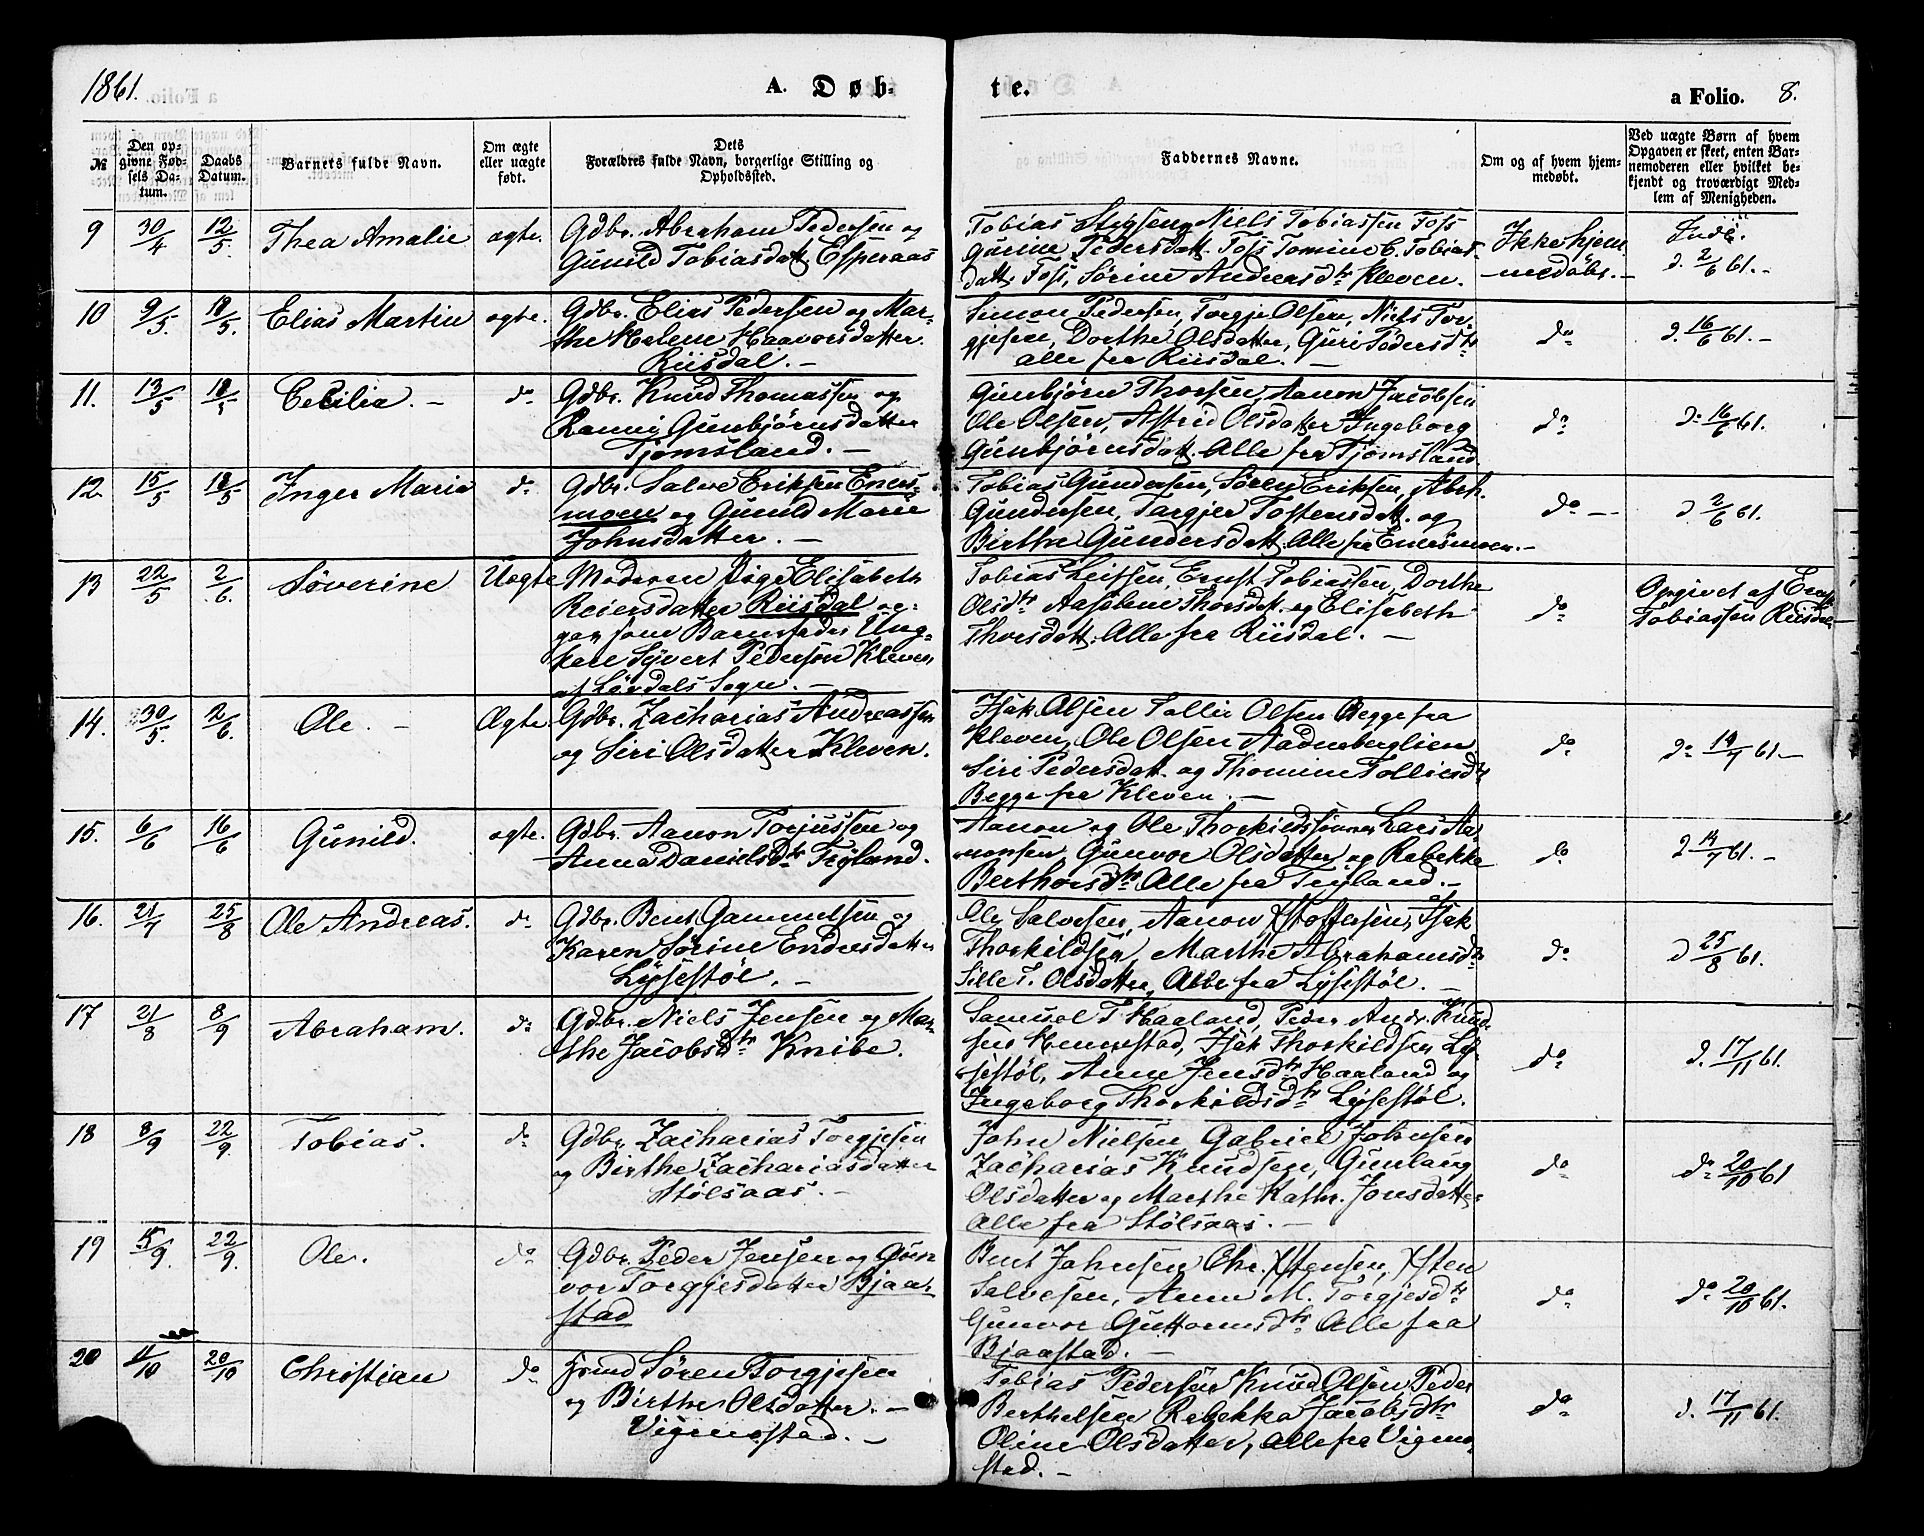 1861.
A. Døb-
te.
a Folio. 8.
№
Den op-
givne Fød-
sels Da-
tum.
Daabs
Datum.
Barnets fulde Navn.
Om ægte
eller uægte
født.
Dets
Forældres fulde Navn, borgerlige Stilling og
Opholdssted.
Faddernes Navne.
Om og af hvem hjem-
medøbt.
Ved uægte Børn af hvem
Opgaven er skeet, enten Bar-
nemoderen eller hvilket be-
kjendt og troværdigt Med-
lem af Menigheden.
9 30/4 12/5. Thea Amalie ægte.
Gdbr. Abraham Pedersen og
Gunild Tobiasdatt. Esperaas
Tobias Niels Tobiassen Foss
Gurine Pedersdatt. Foss Tomine C. Tobias-
datt. Foss, Sørine Andreasdtr Kleven.
Ikke hjem
medøbt. —
Indl.
d. 2/6 61. —
10 9/5. /5. Elias Martin ægte.
Gdbr. Elias Pedersen og Mar-
the Helene Haavorsdatter
Riisdal. —
Simon Pedersen, Torgje Olsen, Niels Tor-
gjesen, Dorthe Olsdatter, Guri Pedersdtr
alle fra Riisdal. —
do
d. 16/6 61. —
11. 13/5 /5 Cecilia. — do
Gdbr. Knud Thomassen og
Ranni Gunbjørnsdatter
Tjomsland. —
Gunbjørn Thorsen, Aanon Jacobsen
Ole Olsen, Astrid Olsdatter Ingeborg
Gunbjørnsdatt. Alle fra Tjomsland.
do
d. 16/6 61.
12 15/5 /5 Inger Maria do
Gdbr. Salve Eriksen Eners-
moen og Gunild Marie
Johnsdatter. —
Tobias Gundersen, Søren Eriksen, Abrh.
Gundersen, Targjer Tostensdatt. og
Birthe Gundersdatt. Alle fra Enersmoen. —
do —
d. 2/6 61.
13 22/5 2/6. Søverine Uægte
Moderen Pige Elisabeth
Reiersdatter Riisdal og
som Barnefader Ung-
karl Syvert Pedersen Kleven,
af Løvdals Sogn. —
Tobias Leifsen, Ernst Tobiassen, Dorthe
Olsdtr Aaselene Thorsdatt. og Elisabeth
Thorsdatt. Alle fra Riisdal. —
do
Opgivet af Ernst
Tobiassen Riisdal —
14. 30/5. 2/6. Ole. — Ægte.
Gdbr. Zacharias Andreassen
og Siri Olsdatter Kleven.
Isak Olsen Tollie Olsen Begge fra
Kleven, Ole Olsen Aadneberglien
Siri Pedersdatt. og Thomine Tolliesdtr
Begge fra Kleven. —
do
do 14/7 61 —
15. 6/6 16/6 Gunild. ægte.
Gdbr. Aanon Torjussen og
Anna Danielsdtr Tryland.
Aanon og Ole Thorkildssønner Lars Aa-
nonsen, Gunvor Olsdatter og Rebekka
Berthorsdtr Alle fra Tryland. —
do
d 14/7 61. —
16. 21/7 25/8 Ole Andreas. do
Gdbr. Bent Gammelsen og
Karen Sørine Endresdatter
Lysestøl. —
Ole Salvesen, Aanon Xstoffersen, Isak
Thorkildsen, Marthe Abrahamsdtr
Sille T. Olsdatter, Alle fra Lysestøl. —
do
d 25/8 61.
17 21/8 8/9 Abraham. do
Gdbr. Niels Jensen og Mar-
the Jacobsdtr Knibe.
Samuel T Haaland, Peder Andr. Knud-
sen Hennestad, Isak Thorkildsen Ly-
sestøl, Anne Jensdtr Haaland og
Ingeborg Thorkildsdtr Lysestøl.
do
d. 17/11 61.
18 8/9 22/9 Tobias. do
Gdbr. Zacharias Torgjesen
og Birthe Zachariasdatter
Stølsaas. —
John Nielsen, Gabriel Johnsen
Zacharias Knudsen, Gunlaug
Olsdatter og Marthe Kathr. Jonsdatter
Alle fra Stølsaas. —
do
do 20/10 61
19 /9. 22/9. Ole. do
Gdbr. Peder Jensen og Gun
vor Torgjesdatter Bjaa-
stad
Bent Johnsen Chr. Xstensen, Xsten
Salvesen, Anne M. Torgjesdtr
Gunvor Guttormsdtr Alle fra
Bjaastad. —
do
do 20/10 61.
20 /10 20/10 Christian do
Søren Torgjesen
og Birthe Olsdatter. —
Vigmostad. —
Tobias Pedersen Knud Olsen Peder
Berthelsen Rebekka Jacobsdtr
Oline Olsdatter, Alle fra Vigmo-
stad. —
do
d. 17/11 61.